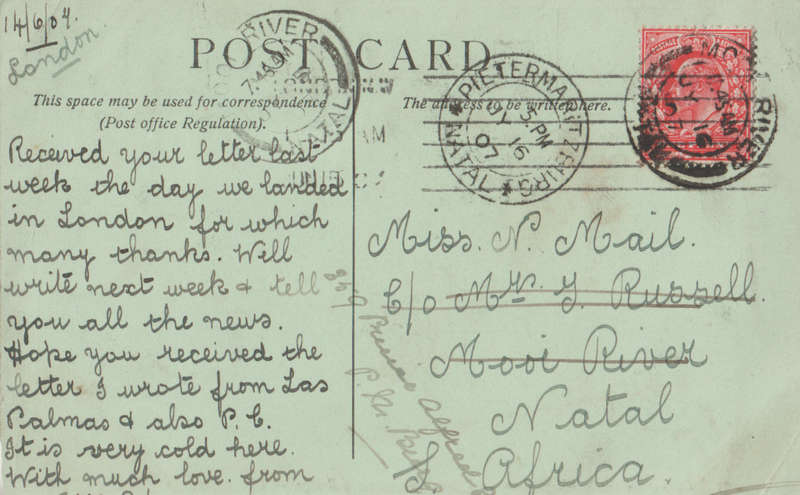 14/6/07.
London.
POST CARD.
This space may be used for correspondence
(Post office Regulation).
The address to be written here.
RIVER
7.45 AM
NATAL
PIETERMARITZBURG
5 PM
JY 16
07
NATAL
MOOI RIVER
7.45 AM
JY 16
07
Received your letter last
week the day we landed
in London for which
many thanks. Will
write next week & tell
you all the news.
Hope you received the
letter I wrote from Las
Palmas & also P. C.
It is very cold here.
With much love from
Miss. N. Mail.
C/o Mrs. J. Russell.
Mooi River
Natal
S. Africa.
Prince Alfred
P. M. Burg